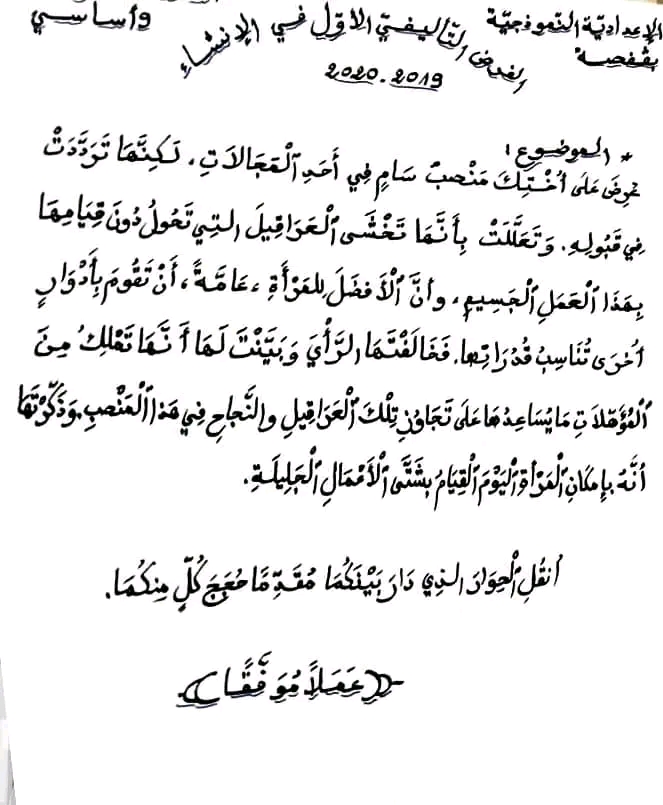 الإعداديّة النّموذجيّة
بقفصة
الفرض التّأليفيّ الأوّل في الإنشاء
2020.2019
و أساسي
* الموضوع:
عُرِضَ عَلَى أُخْتِكَ مَنْصِبٌ سَامٍ فِي أَحَدِ الْمَجَالَاتِ، لَكِنَّهَا تَرَدَّدَتْ
فِي قَبُولِهِ. وَتَعَلَّلَتْ بِأَنَّهَا تَخْشَى الْعَرَاقِيلَ الـتِي تَحُولُ دُونَ قِيَامِهَا
بِهَذَا الْعَمَلِ الْجَسِيمِ، وأنَّ الْأَفْضَلَ لِلمَرْأَةِ، عَامَّةً، أَنْ تَقُومَ بِأَدْوَارٍ
أُخْرَى تُنَاسِبُ قُدُرَاتِهَا. فَخَالَفْتَهَا الرَّأْيَ وَبَيَّنْتَ لَهَا أَنَّهَا تَمْلِكُ مِنَ
الْمُؤَهِّلَاتِ مَا يُسَاعِدُهَا عَلَى تَجَاوُزِ تِلْكَ الْعَرَاقِيلِ والنَّجَاحِ فِي هَذَا الْمَنْصِبِ وَذَكَّرْتَهَا
أَنَّهُ بِإِمْكَانِ الْمَرْأَةِ الْيَوْمَ الْقِيَامُ بِشَتَّى الْأَعْمَالِ الْجَلِيلَةِ.
اُنْقُلِ الْحِوَارَ الـذِي دَارَ بَيْنَكُمَا مُقَدِّمًا حُجَجَ كُلٍّ مِنكُمَا.
عَمَلًا مُوَفَّقًا